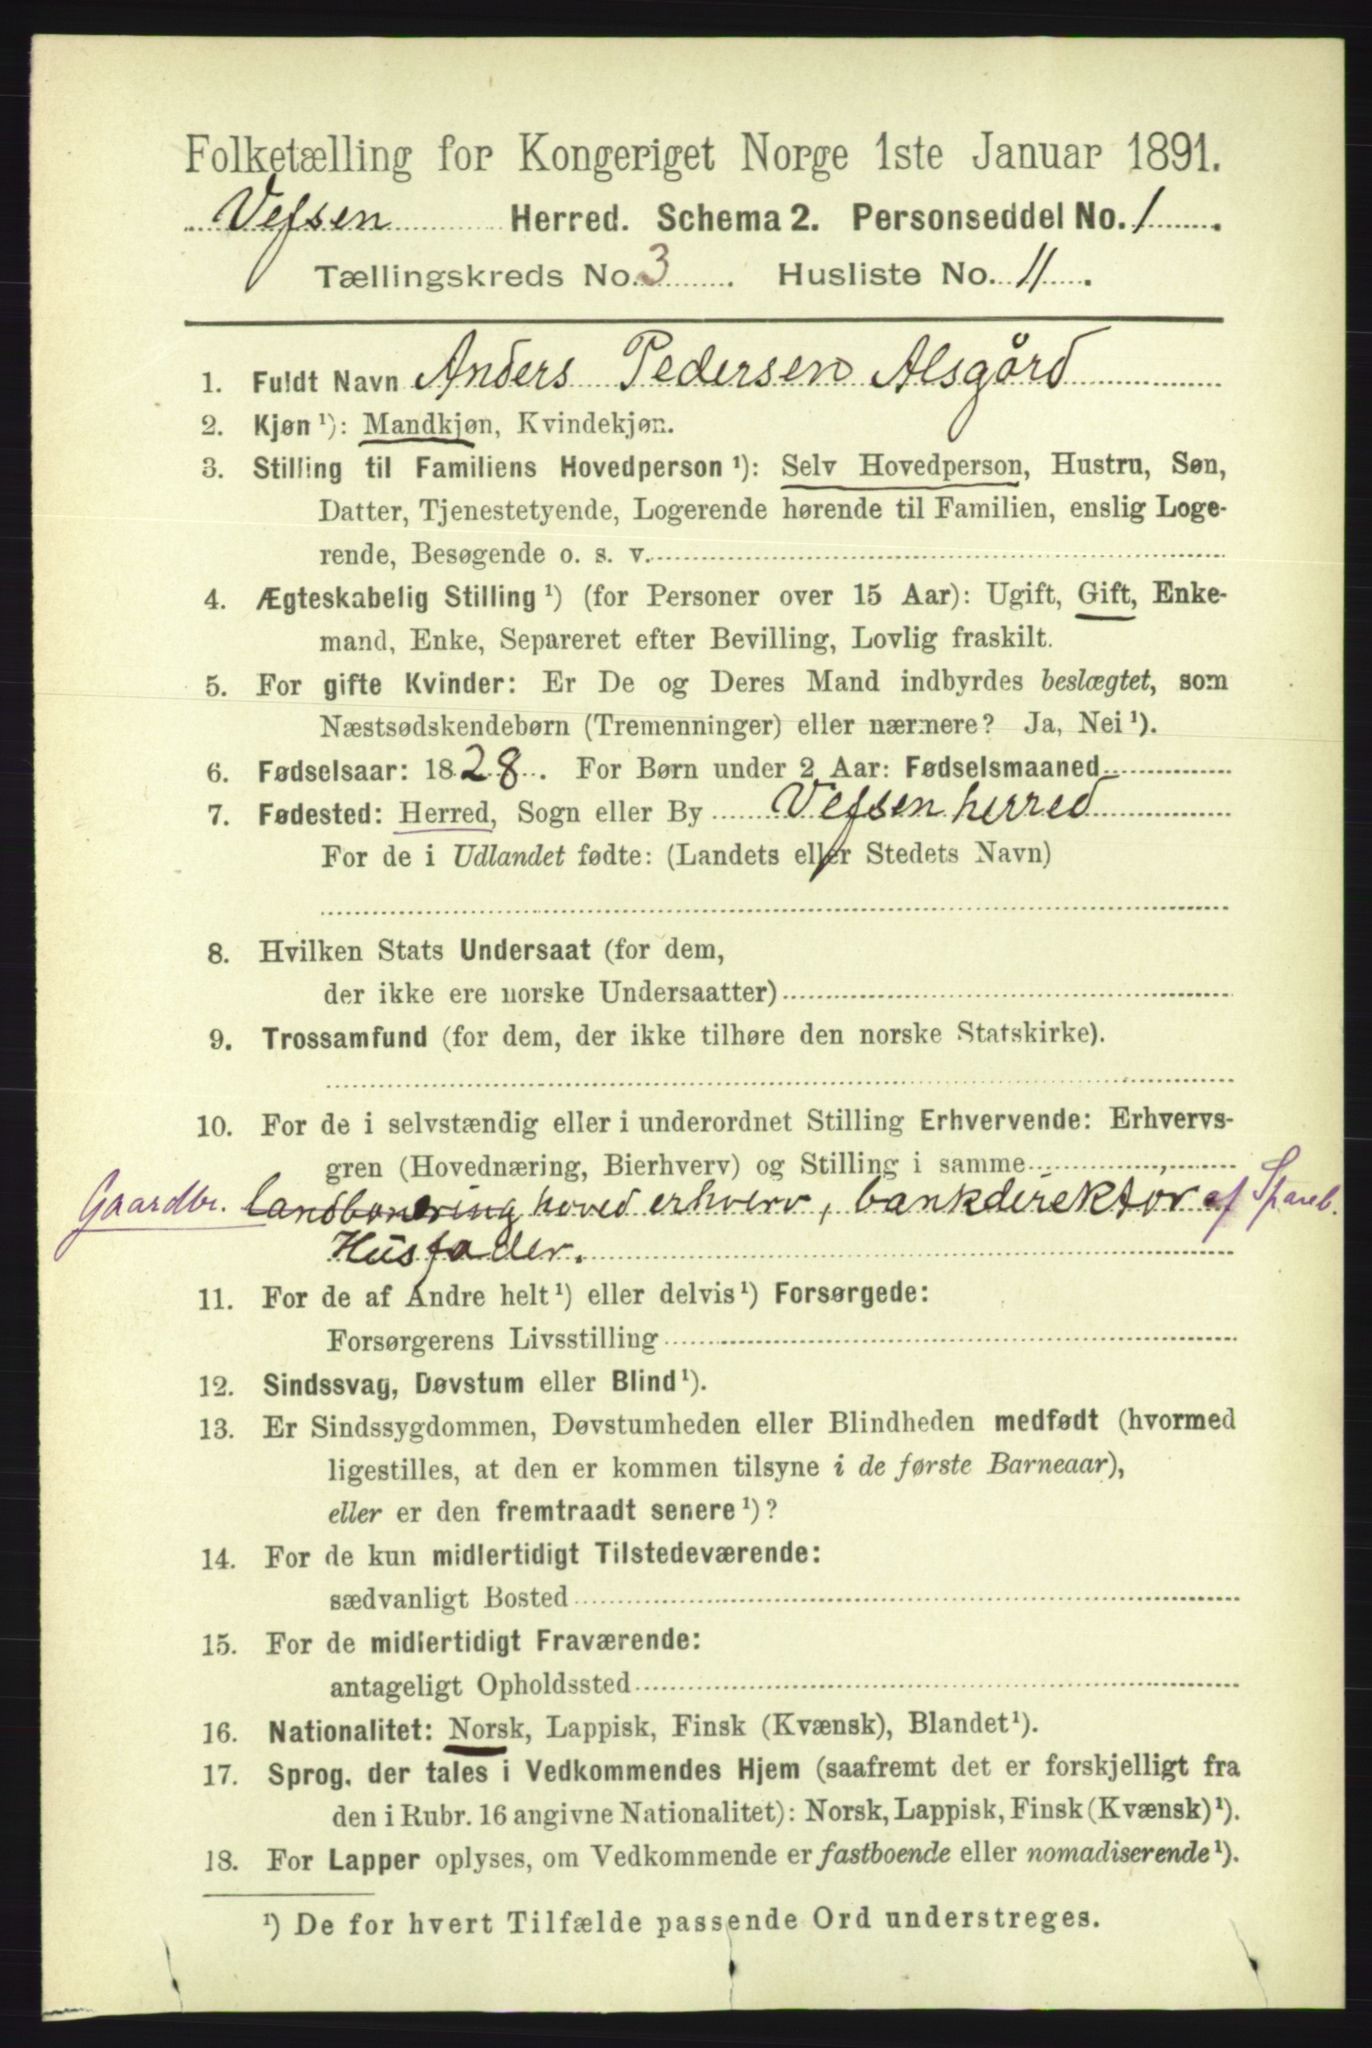 Folketælling for Kongeriget Norge 1ste Januar 1891.
Vefsen Herred. Schema 2. Personseddel No. 1.
Tællingskreds No. 3. Husliste No. 11.
1. Fuldt Navn Anders Pedersen Alsgård
2. Kjøn ¹): Mandkjøn, Kvindekjøn.
3. Stilling til Familiens Hovedperson ¹): Selv Hovedperson, Hustru, Søn,
Datter, Tjenestetyende, Logerende hørende til Familien, enslig Loge-
rende, Besøgende o. s. v.
4. Ægteskabelig Stilling ¹) (for Personer over 15 Aar): Ugift, Gift, Enke-
mand, Enke, Separeret efter Bevilling, Lovlig fraskilt.
5. For gifte Kvinder: Er De og Deres Mand indbyrdes beslægtet, som
Næstsødskendebørn (Tremenninger) eller nærmere? Ja, Nei ¹).
6. Fødselsaar: 1828. For Børn under 2 Aar: Fødselsmaaned
7. Fødested: Herred, Sogn eller By Vefsen herred
For de i Udlandet fødte: (Landets eller Stedets Navn)
8. Hvilken Stats Undersaat (for dem,
der ikke ere norske Undersaatter)
9. Trossamfund (for dem, der ikke tilhøre den norske Statskirke).
10. For de i selvstændig eller i underordnet Stilling Erhvervende: Erhvervs-
gren (Hovednæring, Bierhverv) og Stilling i samme
Gaardbr. landbonering hoved erhverv, bankdirektør af Spareb.
Husfader.
11. For de af Andre helt ¹) eller delvis ¹) Forsørgede:
Forsørgerens Livsstilling
12. Sindssvag, Døvstum eller Blind ¹).
13. Er Sindssygdommen, Døvstumheden eller Blindheden medfødt (hvormed
ligestilles, at den er kommen tilsyne i de første Barneaar),
eller er den fremtraadt senere ¹)?
14. For de kun midlertidigt Tilstedeværende:
sædvanligt Bosted
15. For de midlertidigt Fraværende:
antageligt Opholdssted
16. Nationalitet: Norsk, Lappisk, Finsk (Kvænsk), Blandet ¹).
17. Sprog, der tales i Vedkommendes Hjem (saafremt det er forskjelligt fra
den i Rubr. 16 angivne Nationalitet): Norsk, Lappisk, Finsk (Kvænsk) ¹).
18. For Lapper oplyses, om Vedkommende er fastboende eller nomadiserende ¹).
¹) De for hvert Tilfælde passende Ord understreges.